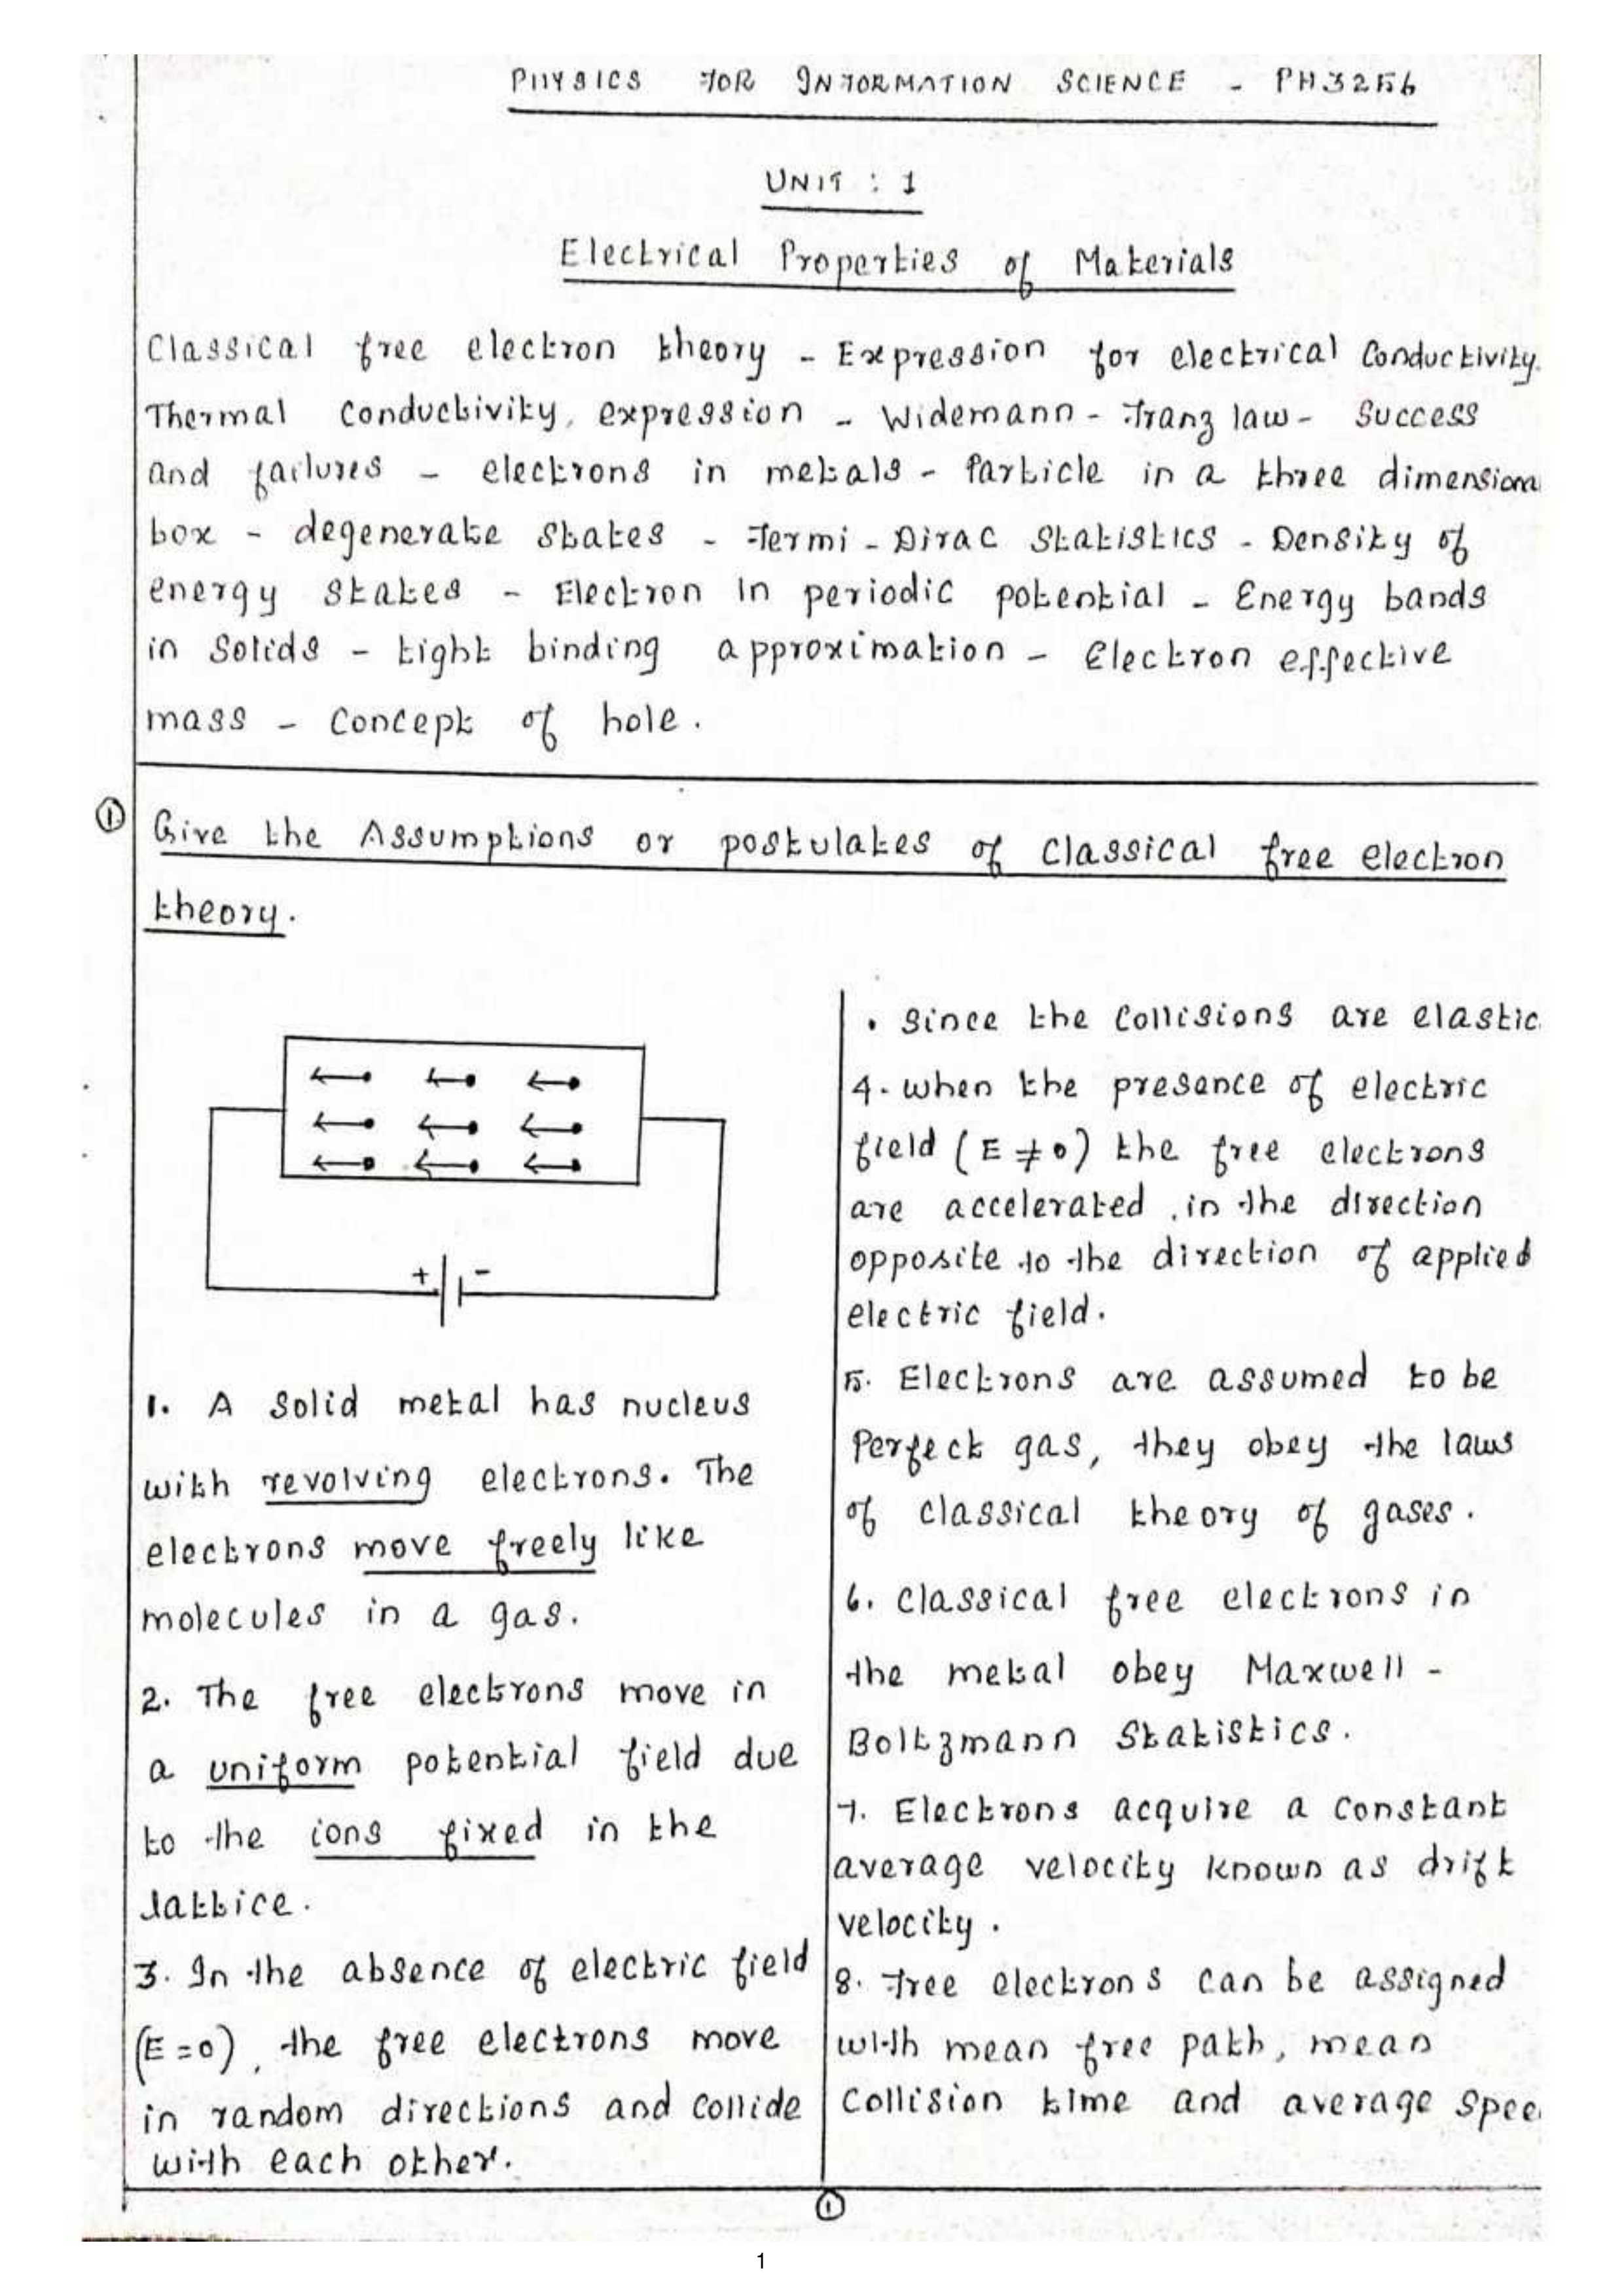 PHYSICS FOR INFORMATION SCIENCE - PH3256
UNIT : 1
Electrical Properties of Materials
Classical free electron theory - Expression for electrical Conductivity.
Thermal Conductivity, expression - Widemann - Franz law - Success
and failures - electrons in metals - Particle in a three dimensiona
box - degenerate States - Fermi - Dirac Statistics - Density of
energy states - Electron in periodic potential - Energy bands
in Solids - tight binding approximation - Electron effective
mass - Concept of hole.
① Give the Assumptions or postulates of Classical free electron
theory.
+ -
1. A Solid metal has nucleus
with revolving electrons. The
electrons move freely like
molecules in a gas.
2. The free electrons move in
a uniform potential field due
to the ions fixed in the
lattice.
3. In the absence of electric field
(E=0), the free electrons move
in random directions and Collide
with each other.
• Since the Collisions are elastic.
4. When the presence of electric
field (E ≠ 0) the free electrons
are accelerated in the direction
opposite to the direction of applied
electric field.
5. Electrons are assumed to be
Perfect gas, they obey the laws
of classical theory of gases.
6. Classical free electrons in
the metal obey Maxwell -
Boltzmann Statistics.
7. Electrons acquire a Constant
average velocity known as drift
velocity.
8. Free electrons can be assigned
with mean free path, mean
Collision time and average Spee
①
1